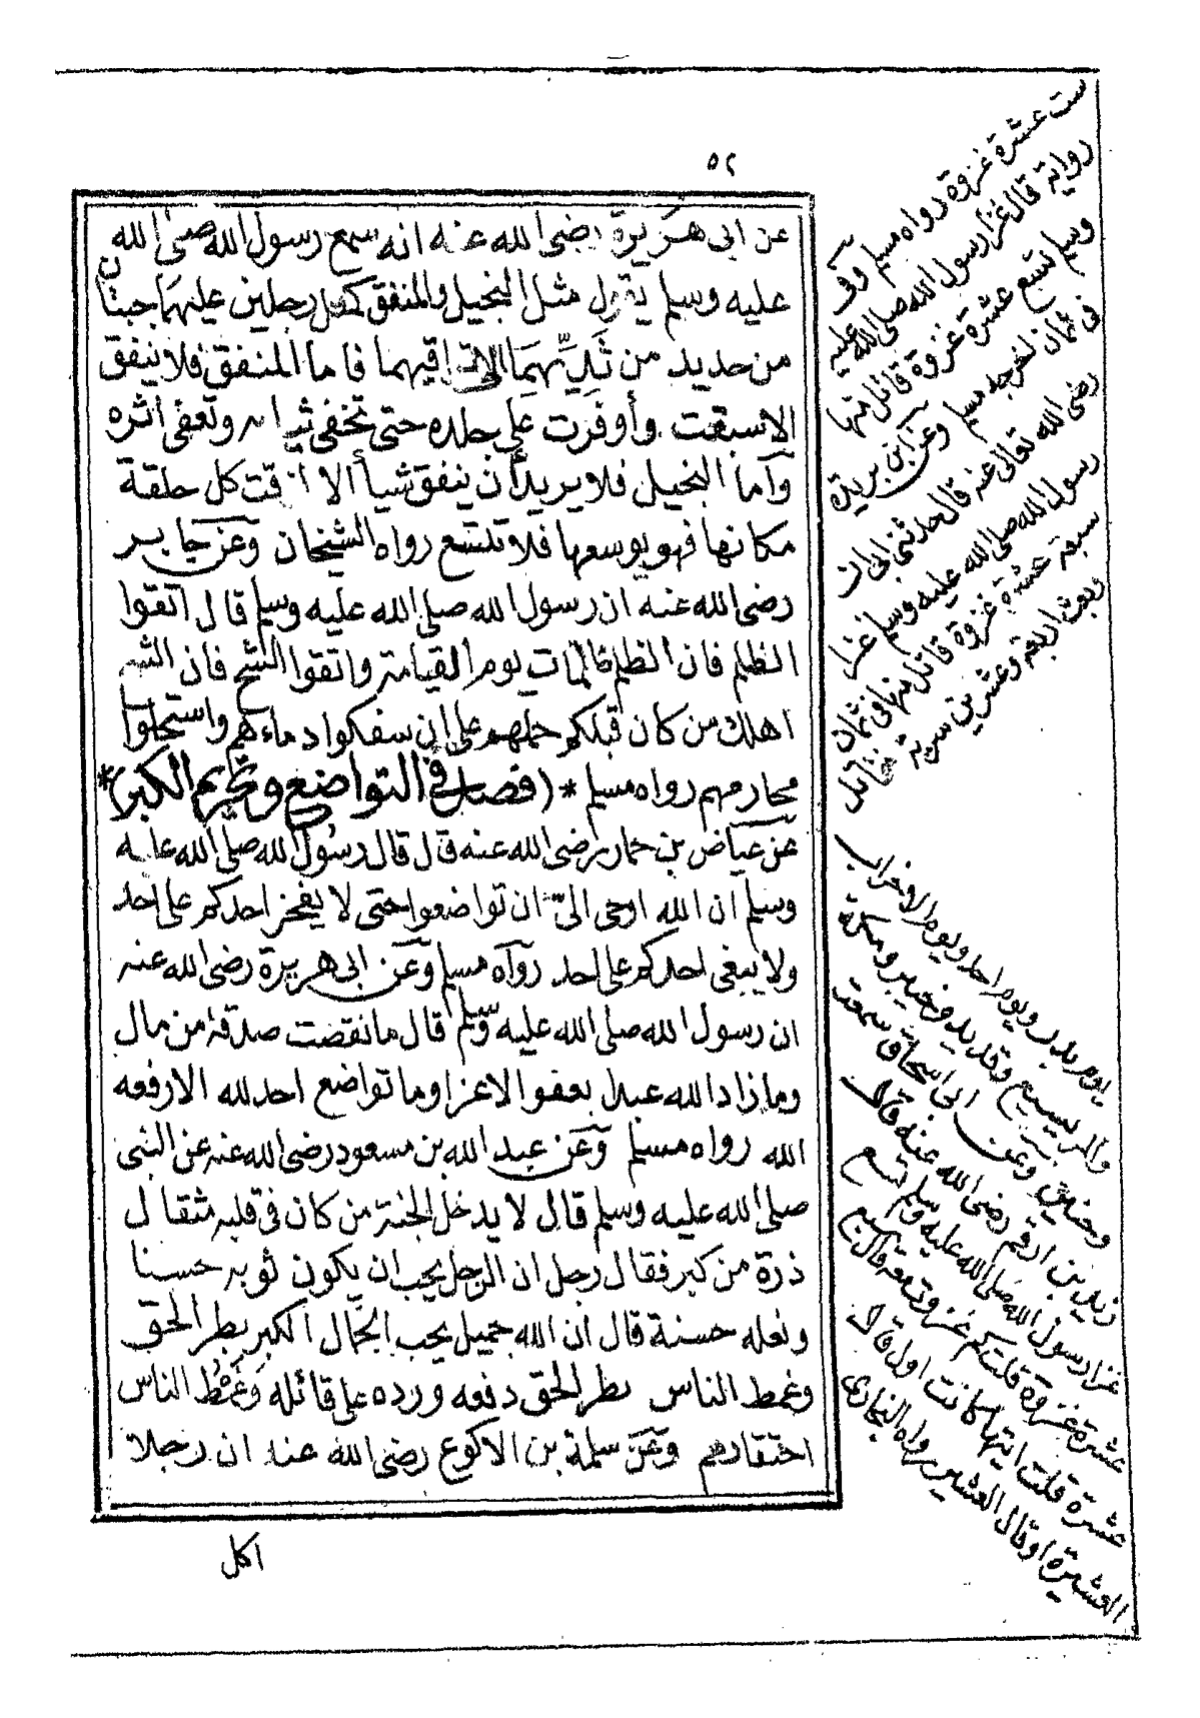 ٥٢
عن ابى هريرة رضى الله عنه انه سمع رسول الله صلى الله
عليه وسلم يقول مثل البخيل والمنفق كمثل رجلين عليهما جبتان
من حديد من ثديهما الى تراقيهما فاما المنفق فلا ينفق
الا سبقت وأوفرت على جلده حتى تخفى ثيابه وتعفى اثره
وأما البخيل فلا يريد أن ينفق شيأ الا لزقت كل حلقة
مكانها فهو يوسعها فلا تتسع رواه الشيخان وعن جابر
رضى الله عنه ان رسول الله صلى الله عليه وسلم قال اتقوا
الظلم فان الظلم ظلمات يوم القيامة واتقوا الشح فان الشح
اهلك من كان قبلكم حملهم على ان سفكوا دماءهم واستحلوا
محارمهم رواه مسلم * (فصل فى التواضع وتحريم الكبر) *
عن عياض بن حمار رضى الله عنه قال قال رسول الله صلى الله عليه
وسلم ان الله اوحى الىّ ان تواضعوا حتى لا يفخر احدكم على احد
ولا يبغى احدكم على احد رواه مسلم وعن ابى هريرة رضى الله عنه
ان رسول الله صلى الله عليه وسلم قال ما نقصت صدقة من مال
وما زاد الله عبدا بعفو الا عزا وما تواضع احد لله الا رفعه
الله رواه مسلم وعن عبد الله بن مسعود رضى الله عنه عن النبى
صلى الله عليه وسلم قال لا يدخل الجنة من كان فى قلبه مثقال
ذرة من كبر فقال رجل ان الرجل يحب ان يكون ثوبه حسنا
ونعله حسنة قال ان الله جميل يحب الجمال الكبر بطر الحق
وغمط الناس بطر الحق دفعه ورده على قائله وغمط الناس
احتقارهم وعن سلمة بن الاكوع رضى الله عنه ان رجلا
اكل
ست عشرة غزوة رواه مسلم وفى
رواية قال غزا رسول الله صلى الله عليه
وسلم تسع عشرة غزوة قاتل منها
فى ثمان اخرجه مسلم وعن ابن بريدة
رضى الله تعالى عنه قال حدثنى ابى ان
رسول الله صلى الله عليه وسلم غزا
سبعة عشرة غزوة قاتل منها فى ثمان
وبعث اربعة وعشرين سرية قاتل
يوم بدر ويوم احد ويوم الاحزاب
والمريسيع وقديد وخيبر ومكة
وحنين وعن ابى اسحاق سمعت
زيد بن ارقم رضى الله عنه قال
غزا رسول الله صلى الله عليه وسلم تسع
عشرة غزوة قلت كم غزوت معه قال سبع
عشرة قلت ايتها كانت اول قال
العشيرة او قال العشير رواه البخارى